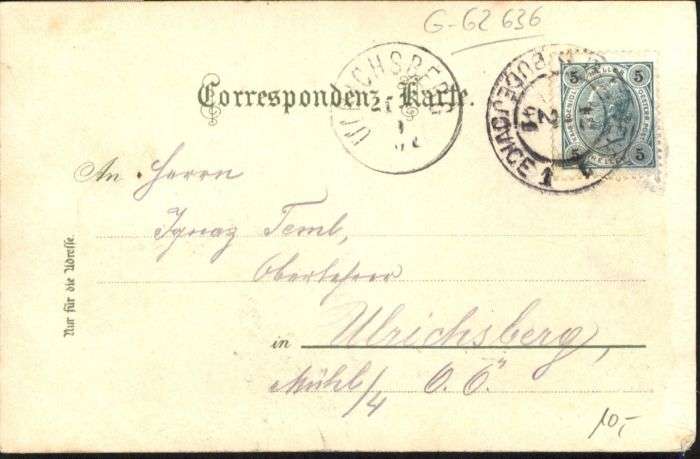 G-62 636
Correspondenz-Karte.
ULRICHSBERG
BUDĚJOVICE 1
5 5
5 5
An Herrn
Ignaz Teml,
Oberlehrer
in Ulrichsberg,
Mühl/4 O. Ö."
Nur für die Adresse.
10,-